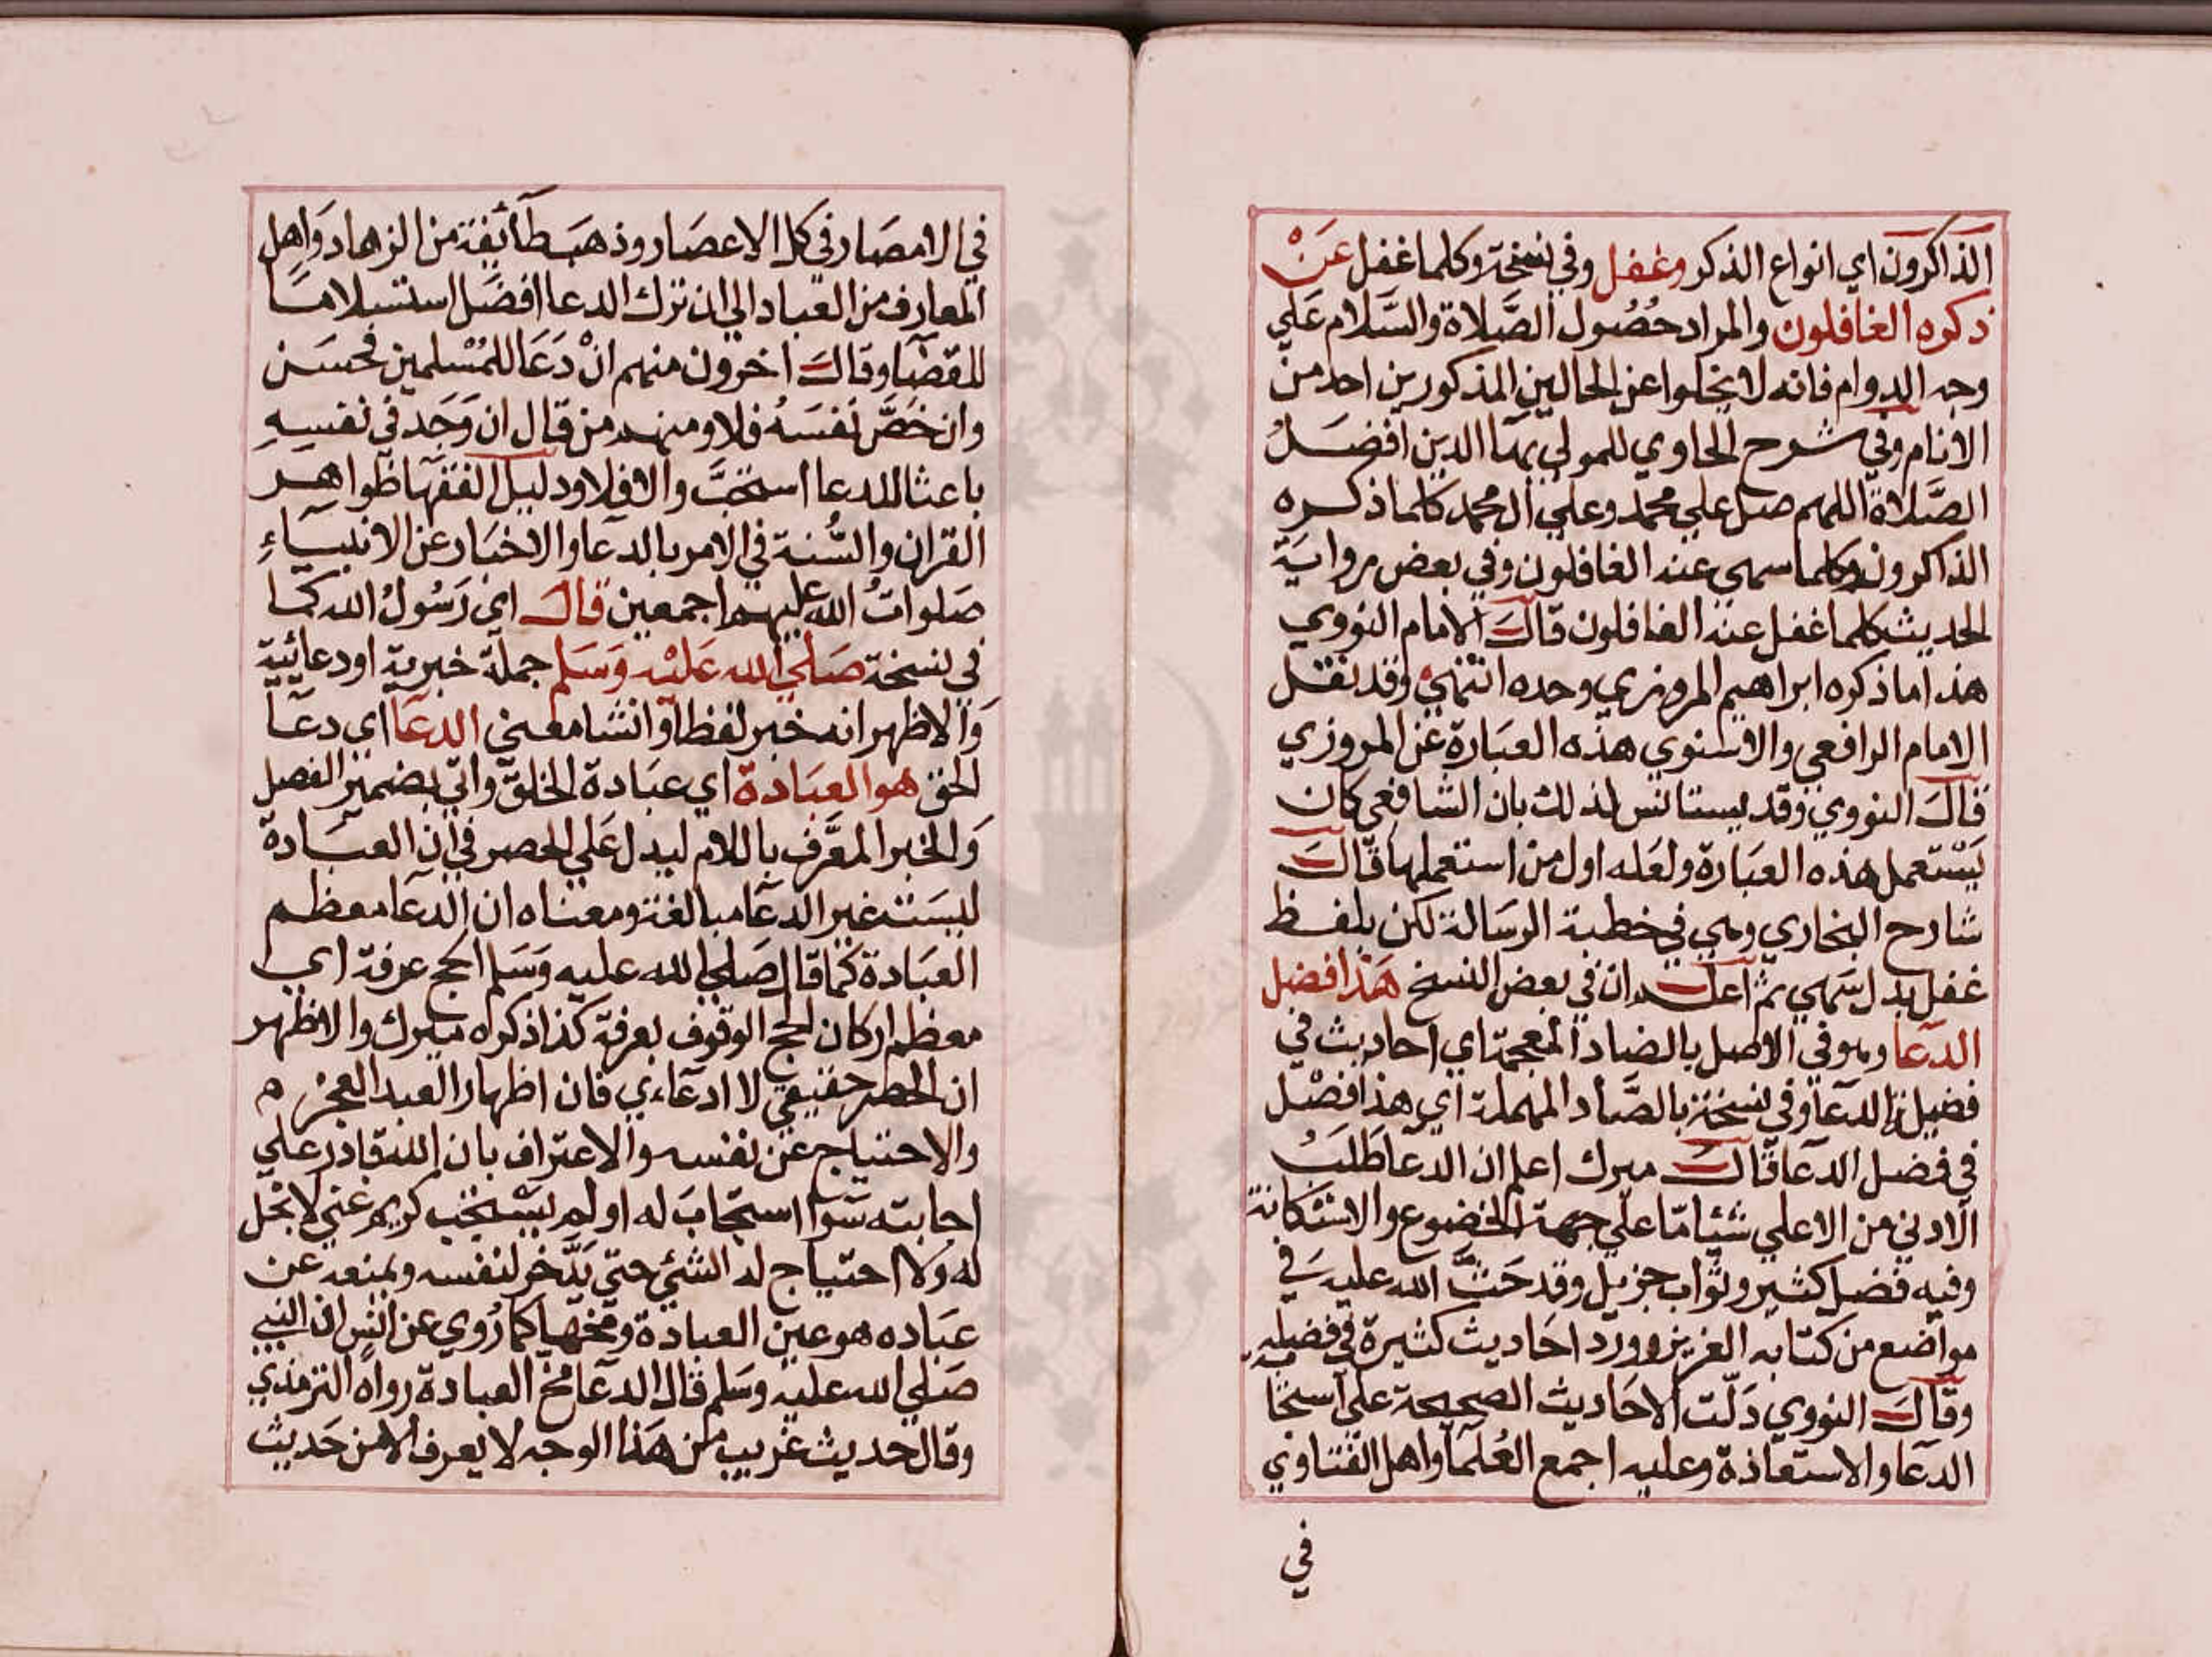 الذاكرون اي انواع الذكر وغفل وفي نسخة وكلما غفل عَنْ
ذكره الغافلون والمراد حُصُول الصَّلاة والسَّلام عَلي
وجه الدوام فانه لا يخلوا عن الحالين المذكورين احد من
الانام وفي شرح الحاوي للمولي بهَا الدين افضَلُ
الصَّلاة اللهم صل علي محمد وعلي ال محمد كلما ذكره
الذاكرون وكلما سهى عنه الغافلون وفي بعض روايَة
الحديث كلما غفل عنه الغافلون قالَ الامام النووي
هذا ما ذكره ابراهيم المروزي وحده انتهي وقد نقل
الامام الرافعي والاسنوي هذه العبَارة عَن المروزي
قالَ النووي وقد يستانس لذلك بان الشافعي كان
يَسْتعمل هذه العبَارة ولعَله اول من استعملها قالَ
شارح البخاري وهي في خطبة الرسَالة لكن بلفظ
غفل بدل سَهي ثم اعلم ان في بعض النسخ هَذا افضل
الدعَا وهو في الاصل بالضاد المعجمة اي احاديث في
فضيلة الدعَا وفي نسخة بالصَّاد المهملة اي هذا فصْل
في فضل الدعَا قالَ ميرك اعلم ان الدعَا طَلبُ
الادني من الاعلي شيئا مّا علي جهة الخضوع والاستكانة
وفيه فضل كثير وثواب جزيل وقد حَثَّ الله عليه في
مواضع من كتابه العزيز وورد احَاديث كثيرة في فضيله
وقالَ النووي دَلّت الاحَاديث الصحيحة علي استحَا
الدعَا والاستعَاذة وعليه اجمع العُلمَا واهل الفتَاوي
في
في الامصَار في كل الاعصَار وذهبَ طَآئفة من الزهاد وَاهل
المعارف من العبَاد الي ان ترك الدعا افضَل استسلامًا
للقضَا وقالَ اخرون منهم انْ دَعَا للمُسْلمين فحسَن
وان خَصَّ نَفسَهُ فلا ومنهم من قال ان وَجَد في نفسِهِ
باعثا للدعا استحبَّ والا فلا ودليل الفقهَا ظَواهر
القران والسُّنة في الامر بالدعَا والاخبَار عن الانبيَاءِ
صَلواتُ الله عليهم اجمعين قالَ اي رَسُولُ الله كما
في نسخة صَلي الله عَليْه وَسَلم جملة خبرية او دعائيّة
وَالاظهر انه خبر لفظا وانشا معنى الدعَا اي دعَا
الحق هو العبَادة اي عبَادة الخلق واتي بضمير الفصل
وَالخبر المعَرَّف باللام ليدل عَلي الحصر في ان العبَادة
ليسَت غير الدعَا مبالغة ومعناه ان الدعَا معظم
العبَادة كما قال صَلي الله عليه وَسَلم الحج عرفة اي
معظم اركان الحج الوقوف بعرفة كذا ذكره ميرك والاظهر
ان الحصر حقيقي لا ادعَاءي فان اظهار العبد العجز ه
والاحتياج عن نفسه والاعتراف بان الله قادر علي
اجابته سَوا استجابَ له او لم يسْتجب كريم غني لا بخل
له ولا احتياج له الشيئ حتي يَدَّخر لنفسه ويمنعه عن
عبَاده هو عين العبادة ومخّها كما رُوي عن انس ان النبي
صَلي الله عليه وسَلم قال الدعَا مخ العبادة رواه الترمذي
وقال حديث غريب من هَذا الوجه لا يعرف الا من حَديث